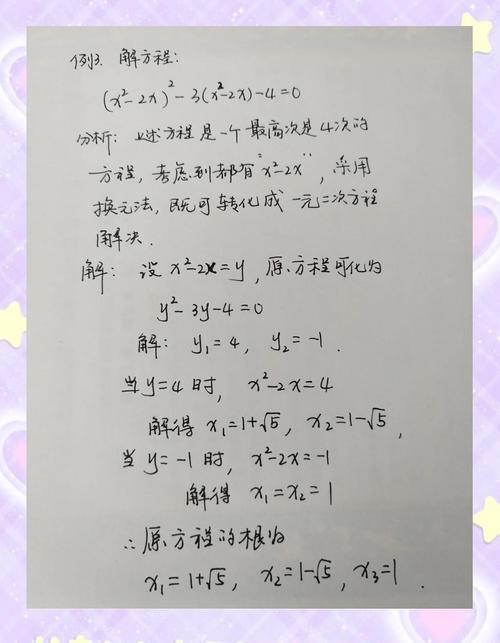 例3. 解方程:
(x²-2x)²-3(x²-2x)-4=0
分析: 上述方程是一个最高次是4次的
方程, 考虑到都有"x²-2x", 采用
换元法, 既可转化成一元二次方程
解决.
解: 设 x²-2x=y, 原方程可化为
y²-3y-4=0
解: y₁=4, y₂=-1.
当y=4时, x²-2x=4
解得 x₁=1+√5, x₂=1-√5,
当y=-1时, x²-2x=-1
解得 x₁=x₂=1
∴原方程的根为
x₁=1+√5, x₂=1-√5, x₃=1.